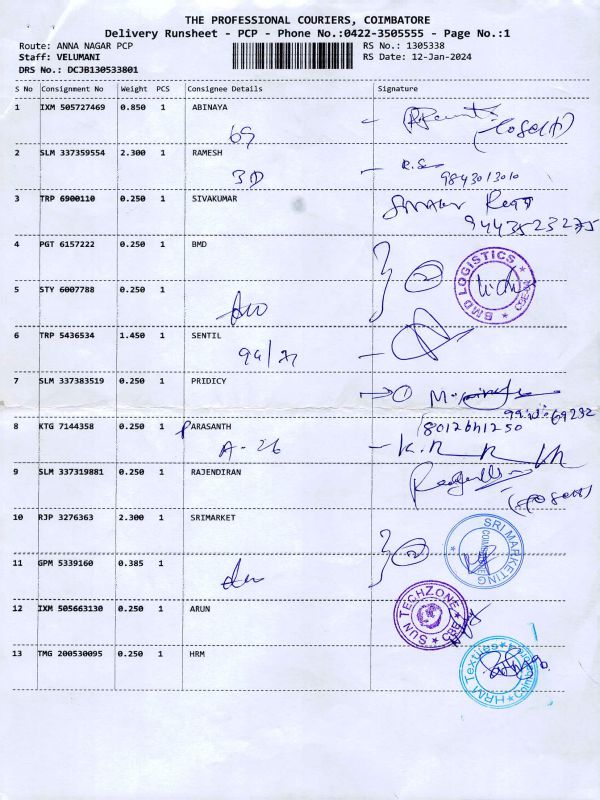 THE PROFESSIONAL COURIERS, COIMBATORE
Delivery Runsheet - PCP - Phone No.:0422-3505555 - Page No.:1
Route: ANNA NAGAR PCP RS No.: 1305338
Staff: VELUMANI RS Date: 12-Jan-2024
DRS No.: DCJB130533801
S No Consignment No Weight PCS Consignee Details Signature
1 IXM 505727469 0.850 1 ABINAYA
69
2 SLM 337359554 2.300 1 RAMESH
3D 9843013010
3 TRP 6900110 0.250 1 SIVAKUMAR
9443523275
4 PGT 6157222 0.250 1 BMD
2
BMD LOGISTICS
5 STY 6007788 0.250 1
6 TRP 5436534 1.450 1 SENTIL
94/
7 SLM 337383519 0.250 1 PRIDICY
1
8 KTG 7144358 0.250 1 PARASANTH
A-26
9 SLM 337319881 0.250 1 RAJENDIRAN
10 RJP 3276363 2.300 1 SRIMARKET
2
SRI MARKETING
11 GPM 5339160 0.385 1
12 IXM 505663130 0.250 1 ARUN
SUN TECHZONE CBE
13 TMG 200530095 0.250 1 HRM
HRM Textiles